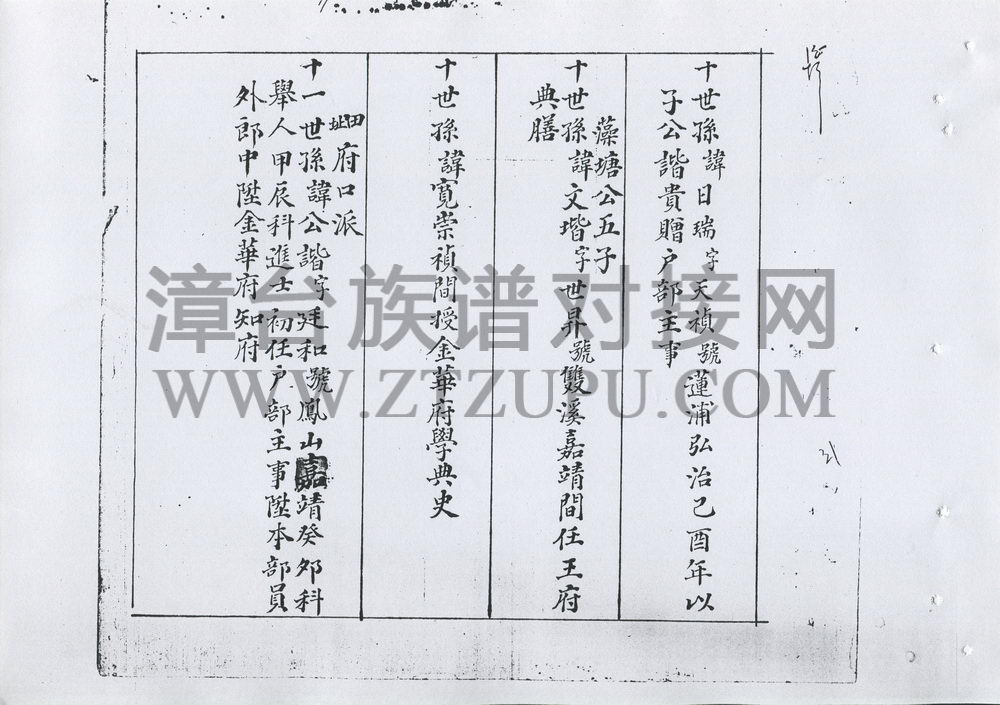 十世孫諱日瑞字天禎號蓮浦弘治己酉年以
子公諧貴贈户部主事
藻塘公五子
十世孫諱文堦字世昇號雙溪嘉靖間任王府
典膳
十世孫諱寬崇禎間授金華府學典史
田址府口派
十一世孫諱公諧字廷和號鳳山嘉靖癸夘科
舉人甲辰科進士初任户部主事陞本部員
外郎中陞金華府知府
漳台族谱对接网
WWW.ZTZUPU.COM